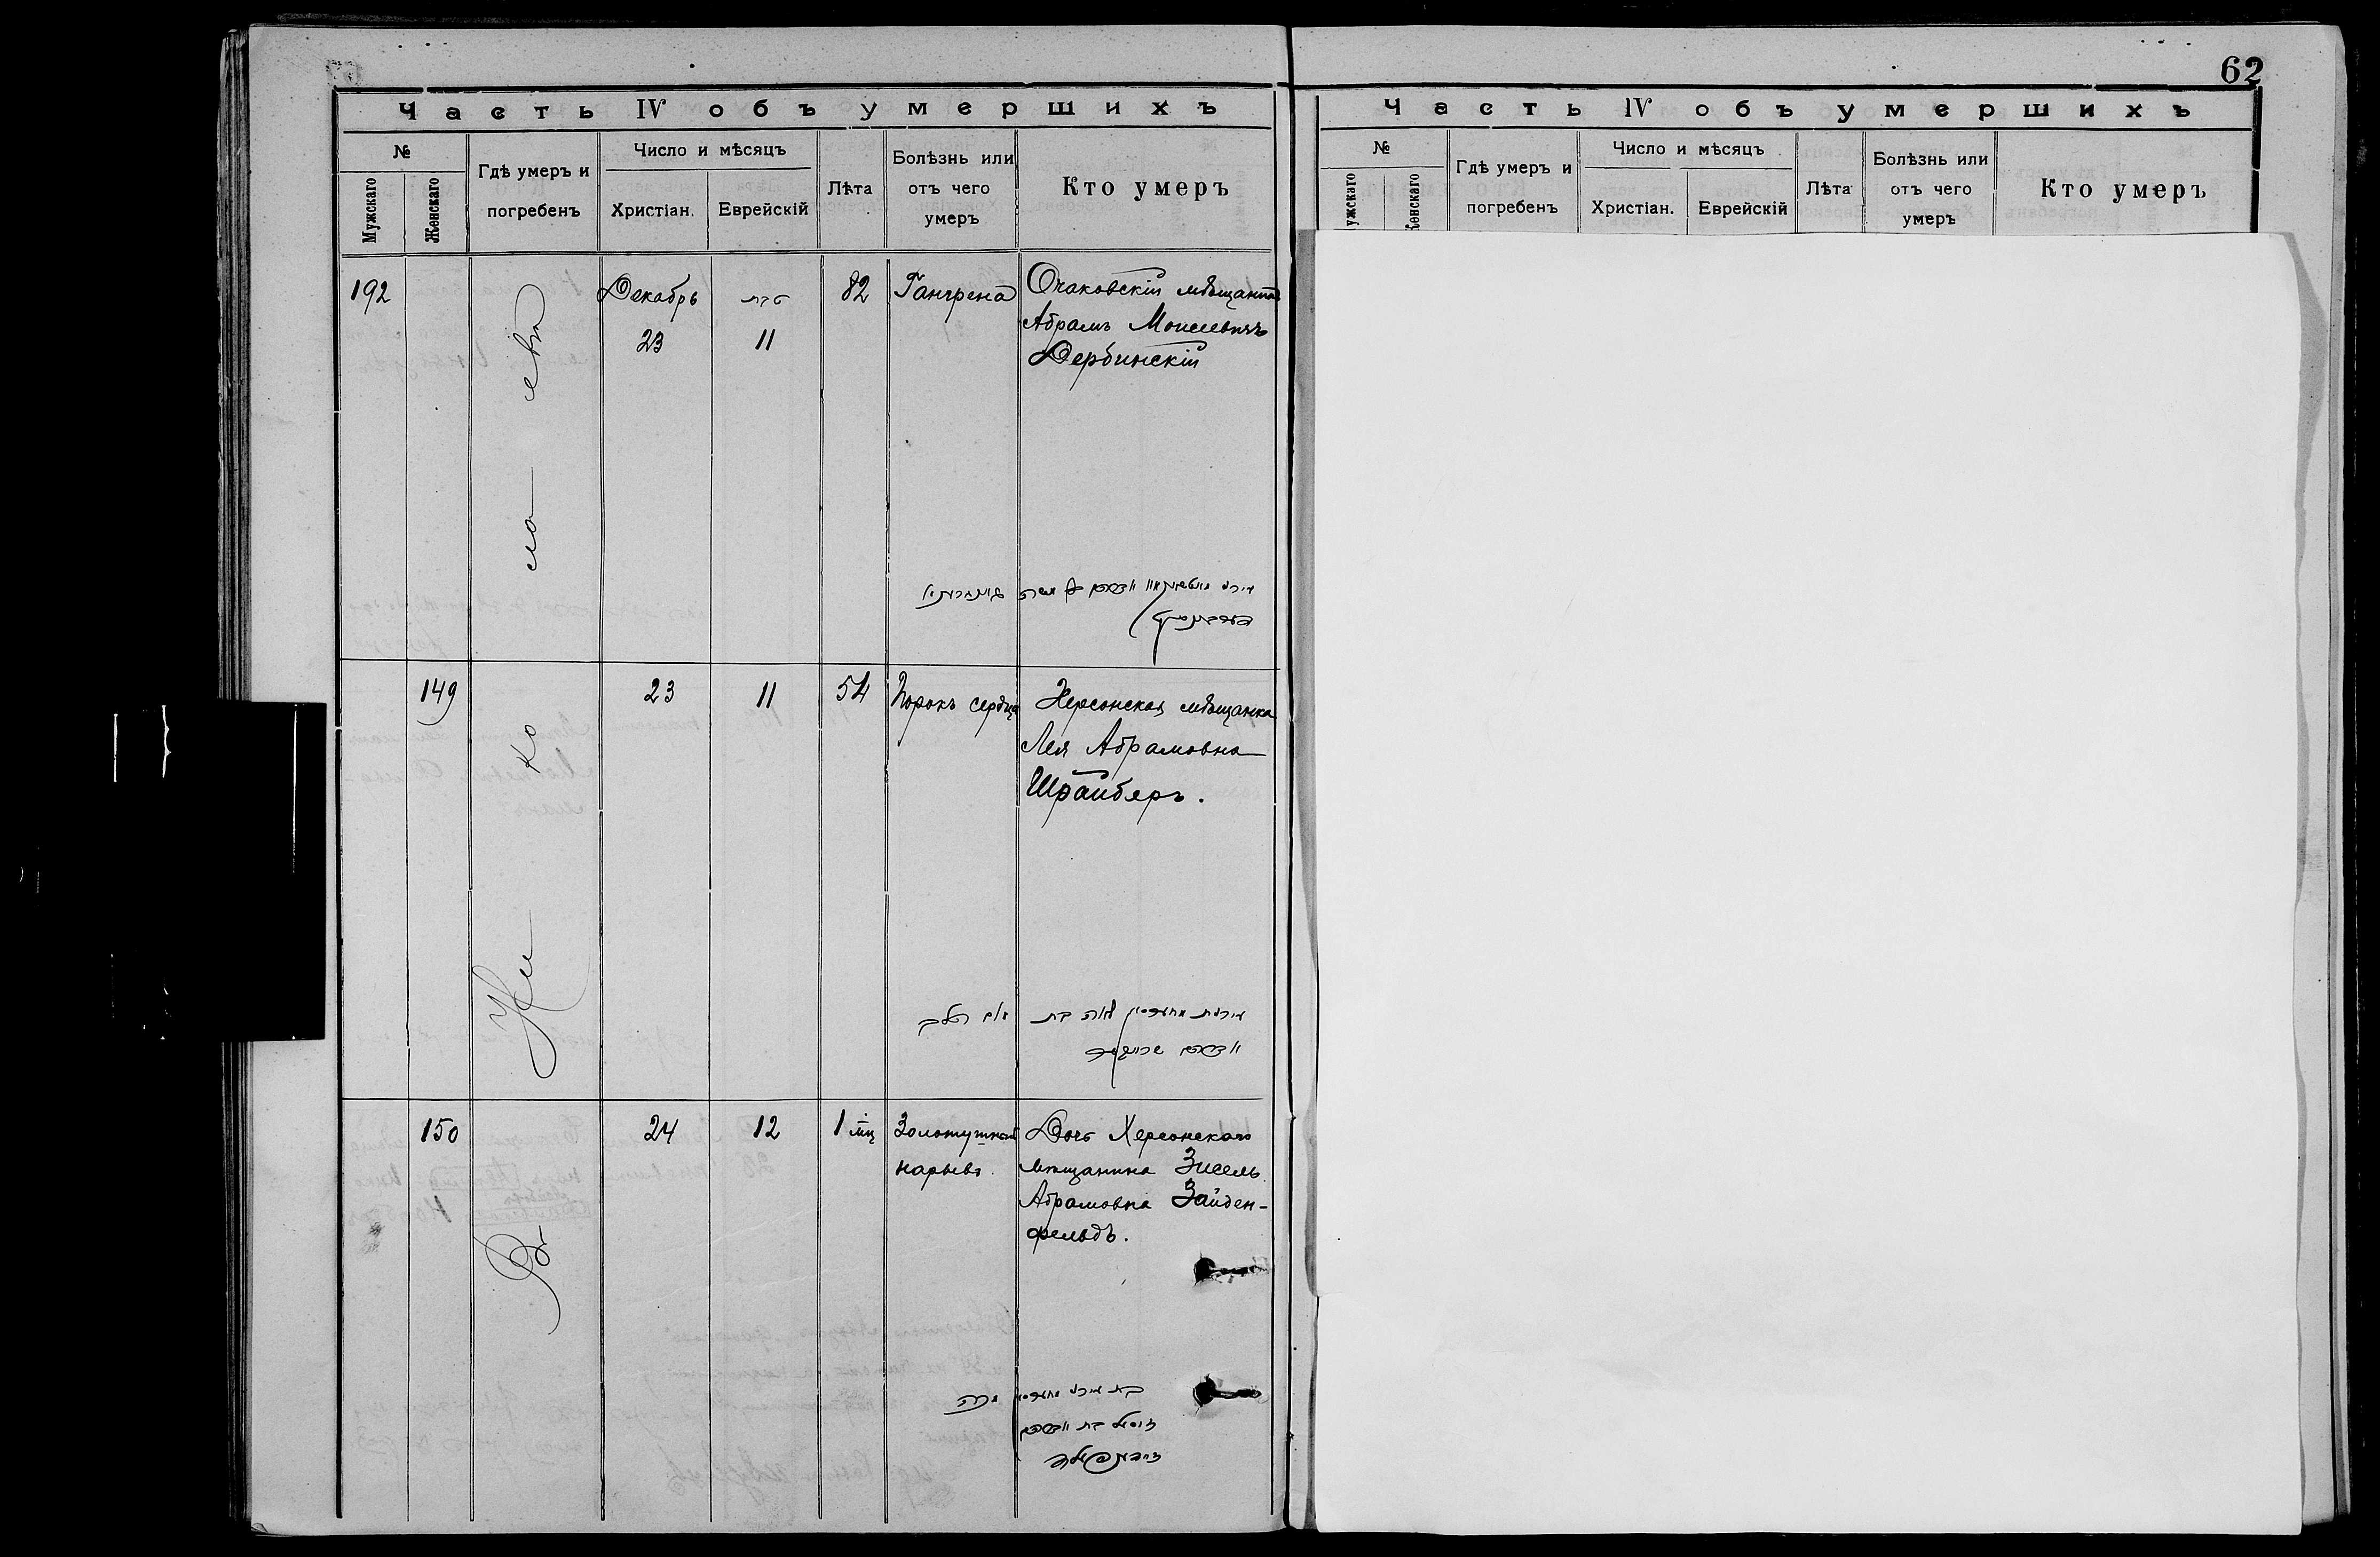 62
Часть IV объ умершихъ
№
Мужскаго
Женскаго
Гдѣ умеръ и
погребенъ
Число и мѣсяцъ
Христіан.
Еврейскій
Лѣта
Болѣзнь или
отъ чего
умеръ
Кто умеръ
192
Декабрь
23
טבת
11
82
Гангрена
Очаковскій мѣщанинъ
Абрамъ Моисеевичъ
Дербинскій
149
23
11
54
Порокъ сердца
Херсонская мѣщанка
Лея Абрамовна
Шрайберъ.
בת
150
24
12
1 мц
Золотушный
нарывъ.
Дочь Херсонскаго
мѣщанина Зисель
Абрамовна Зайден-
фельдъ.
בת
זיסל בת
Въ Николаевѣ
Часть IV объ умершихъ
№
ужскаго
Кенскаго
Гдѣ умеръ и
погребенъ
Число и мѣсяцъ
Христіан.
Еврейскій
Лѣта
Болѣзнь или
отъ чего
умеръ
Кто умеръ